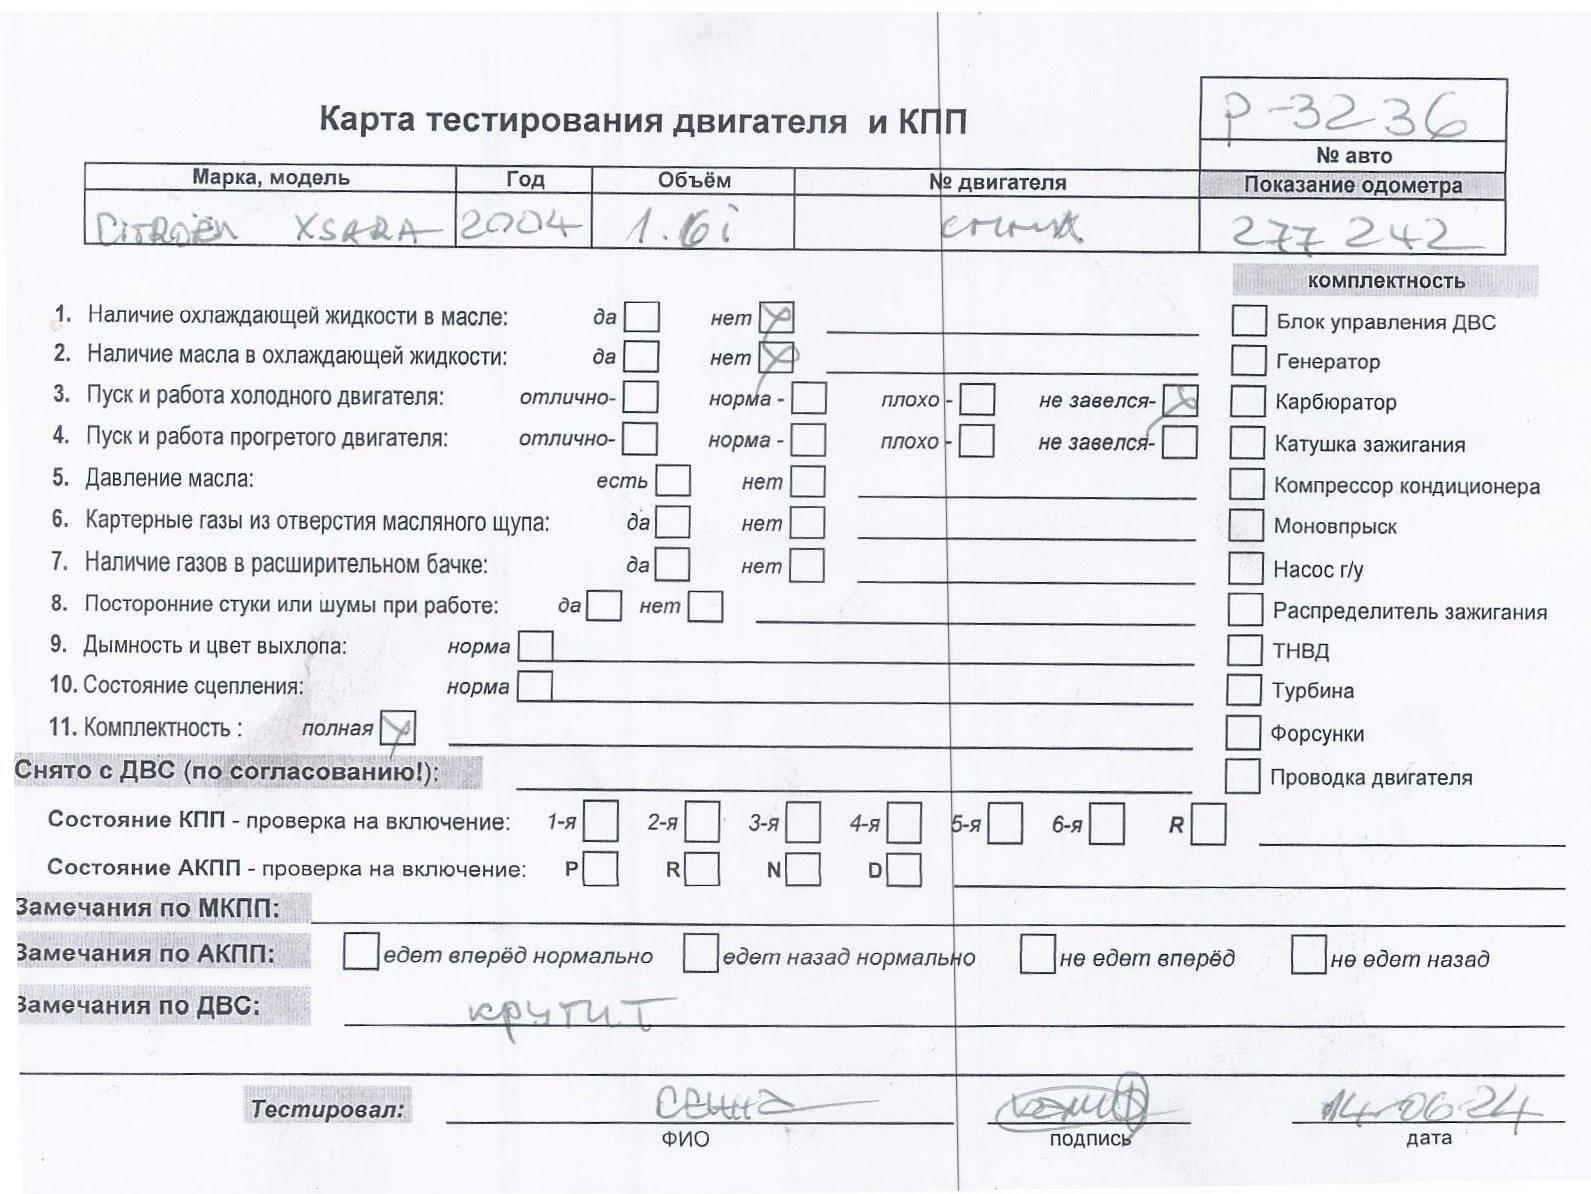 Р-3236
Карта тестирования двигателя и КПП
№ авто
Марка, модель Год Объём № двигателя Показание одометра
CITROËN XSARA 2004 1.6i 277 242
комплектность
1. Наличие охлаждающей жидкости в масле: да нет
Блок управления ДВС
2. Наличие масла в охлаждающей жидкости: да нет
Генератор
3. Пуск и работа холодного двигателя: отлично- норма - плохо - не завелся-
Карбюратор
4. Пуск и работа прогретого двигателя: отлично- норма - плохо - не завелся-
Катушка зажигания
5. Давление масла: есть нет
Компрессор кондиционера
6. Картерные газы из отверстия масляного щупа: да нет
Моновпрыск
7. Наличие газов в расширительном бачке: да нет
Насос г/у
8. Посторонние стуки или шумы при работе: да нет
Распределитель зажигания
9. Дымность и цвет выхлопа: норма
ТНВД
10. Состояние сцепления: норма
Турбина
11. Комплектность : полная
Форсунки
Снято с ДВС (по согласованию!):
Проводка двигателя
Состояние КПП - проверка на включение: 1-я 2-я 3-я 4-я 5-я 6-я R
Состояние АКПП - проверка на включение: P R N D
Замечания по МКПП:
Замечания по АКПП: едет вперёд нормально едет назад нормально не едет вперёд не едет назад
Замечания по ДВС: крутит
Тестировал: 14.06.24
ФИО подпись дата